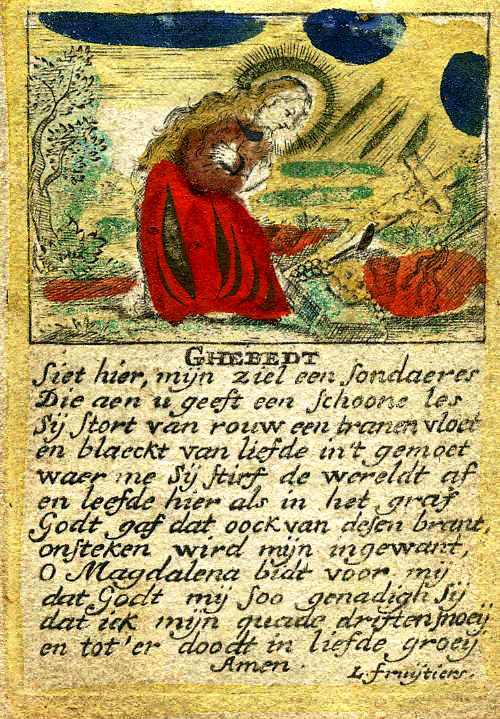 GHEBEDT
Siet hier, mijn ziel een sondaeres
Die aen u geeft een schoone les
Sij stort van rouw een tranen vloet
en blaeckt van liefde in't gemoet
waer me sij stirf de wereldt af
en leefde hier als in het graf
Godt gaf dat oock van desen brant,
onsteken wird mijn ingewant,
O Magdalena bidt voor mij
dat Godt mij soo genadigh sij
dat ick mijn quade driften snoeij
en tot'er doodt in liefde groeij
Amen.
L. fruijtiers.